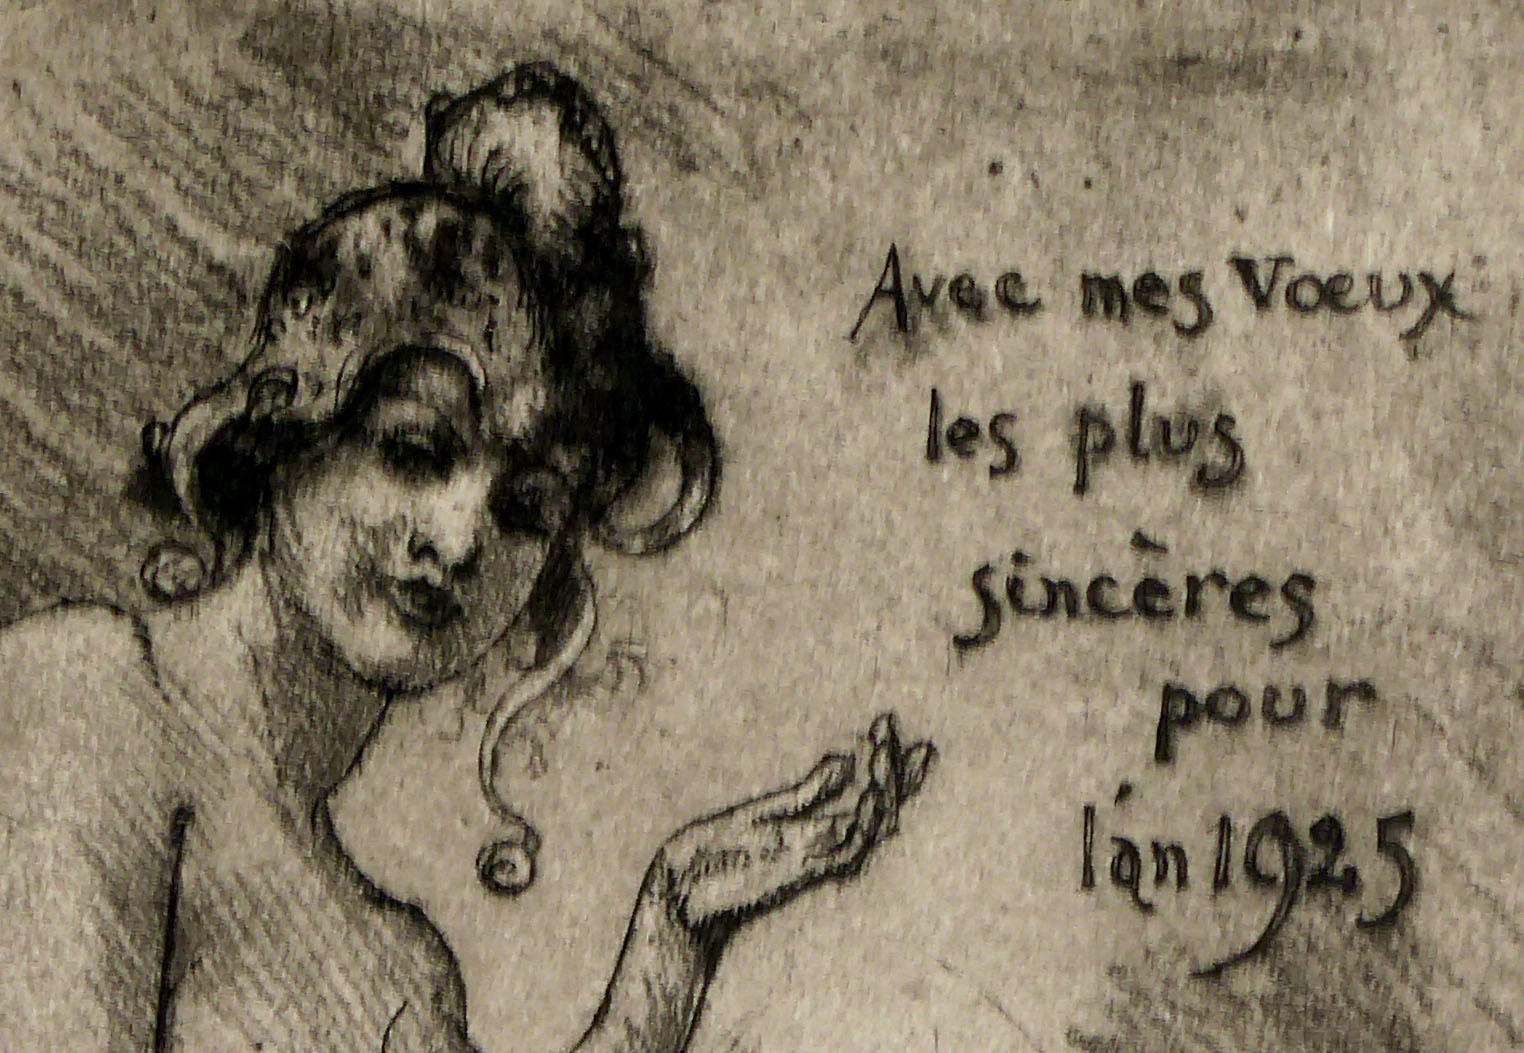 Avec mes Vœux
les plus
sincères
pour
l'an 1925